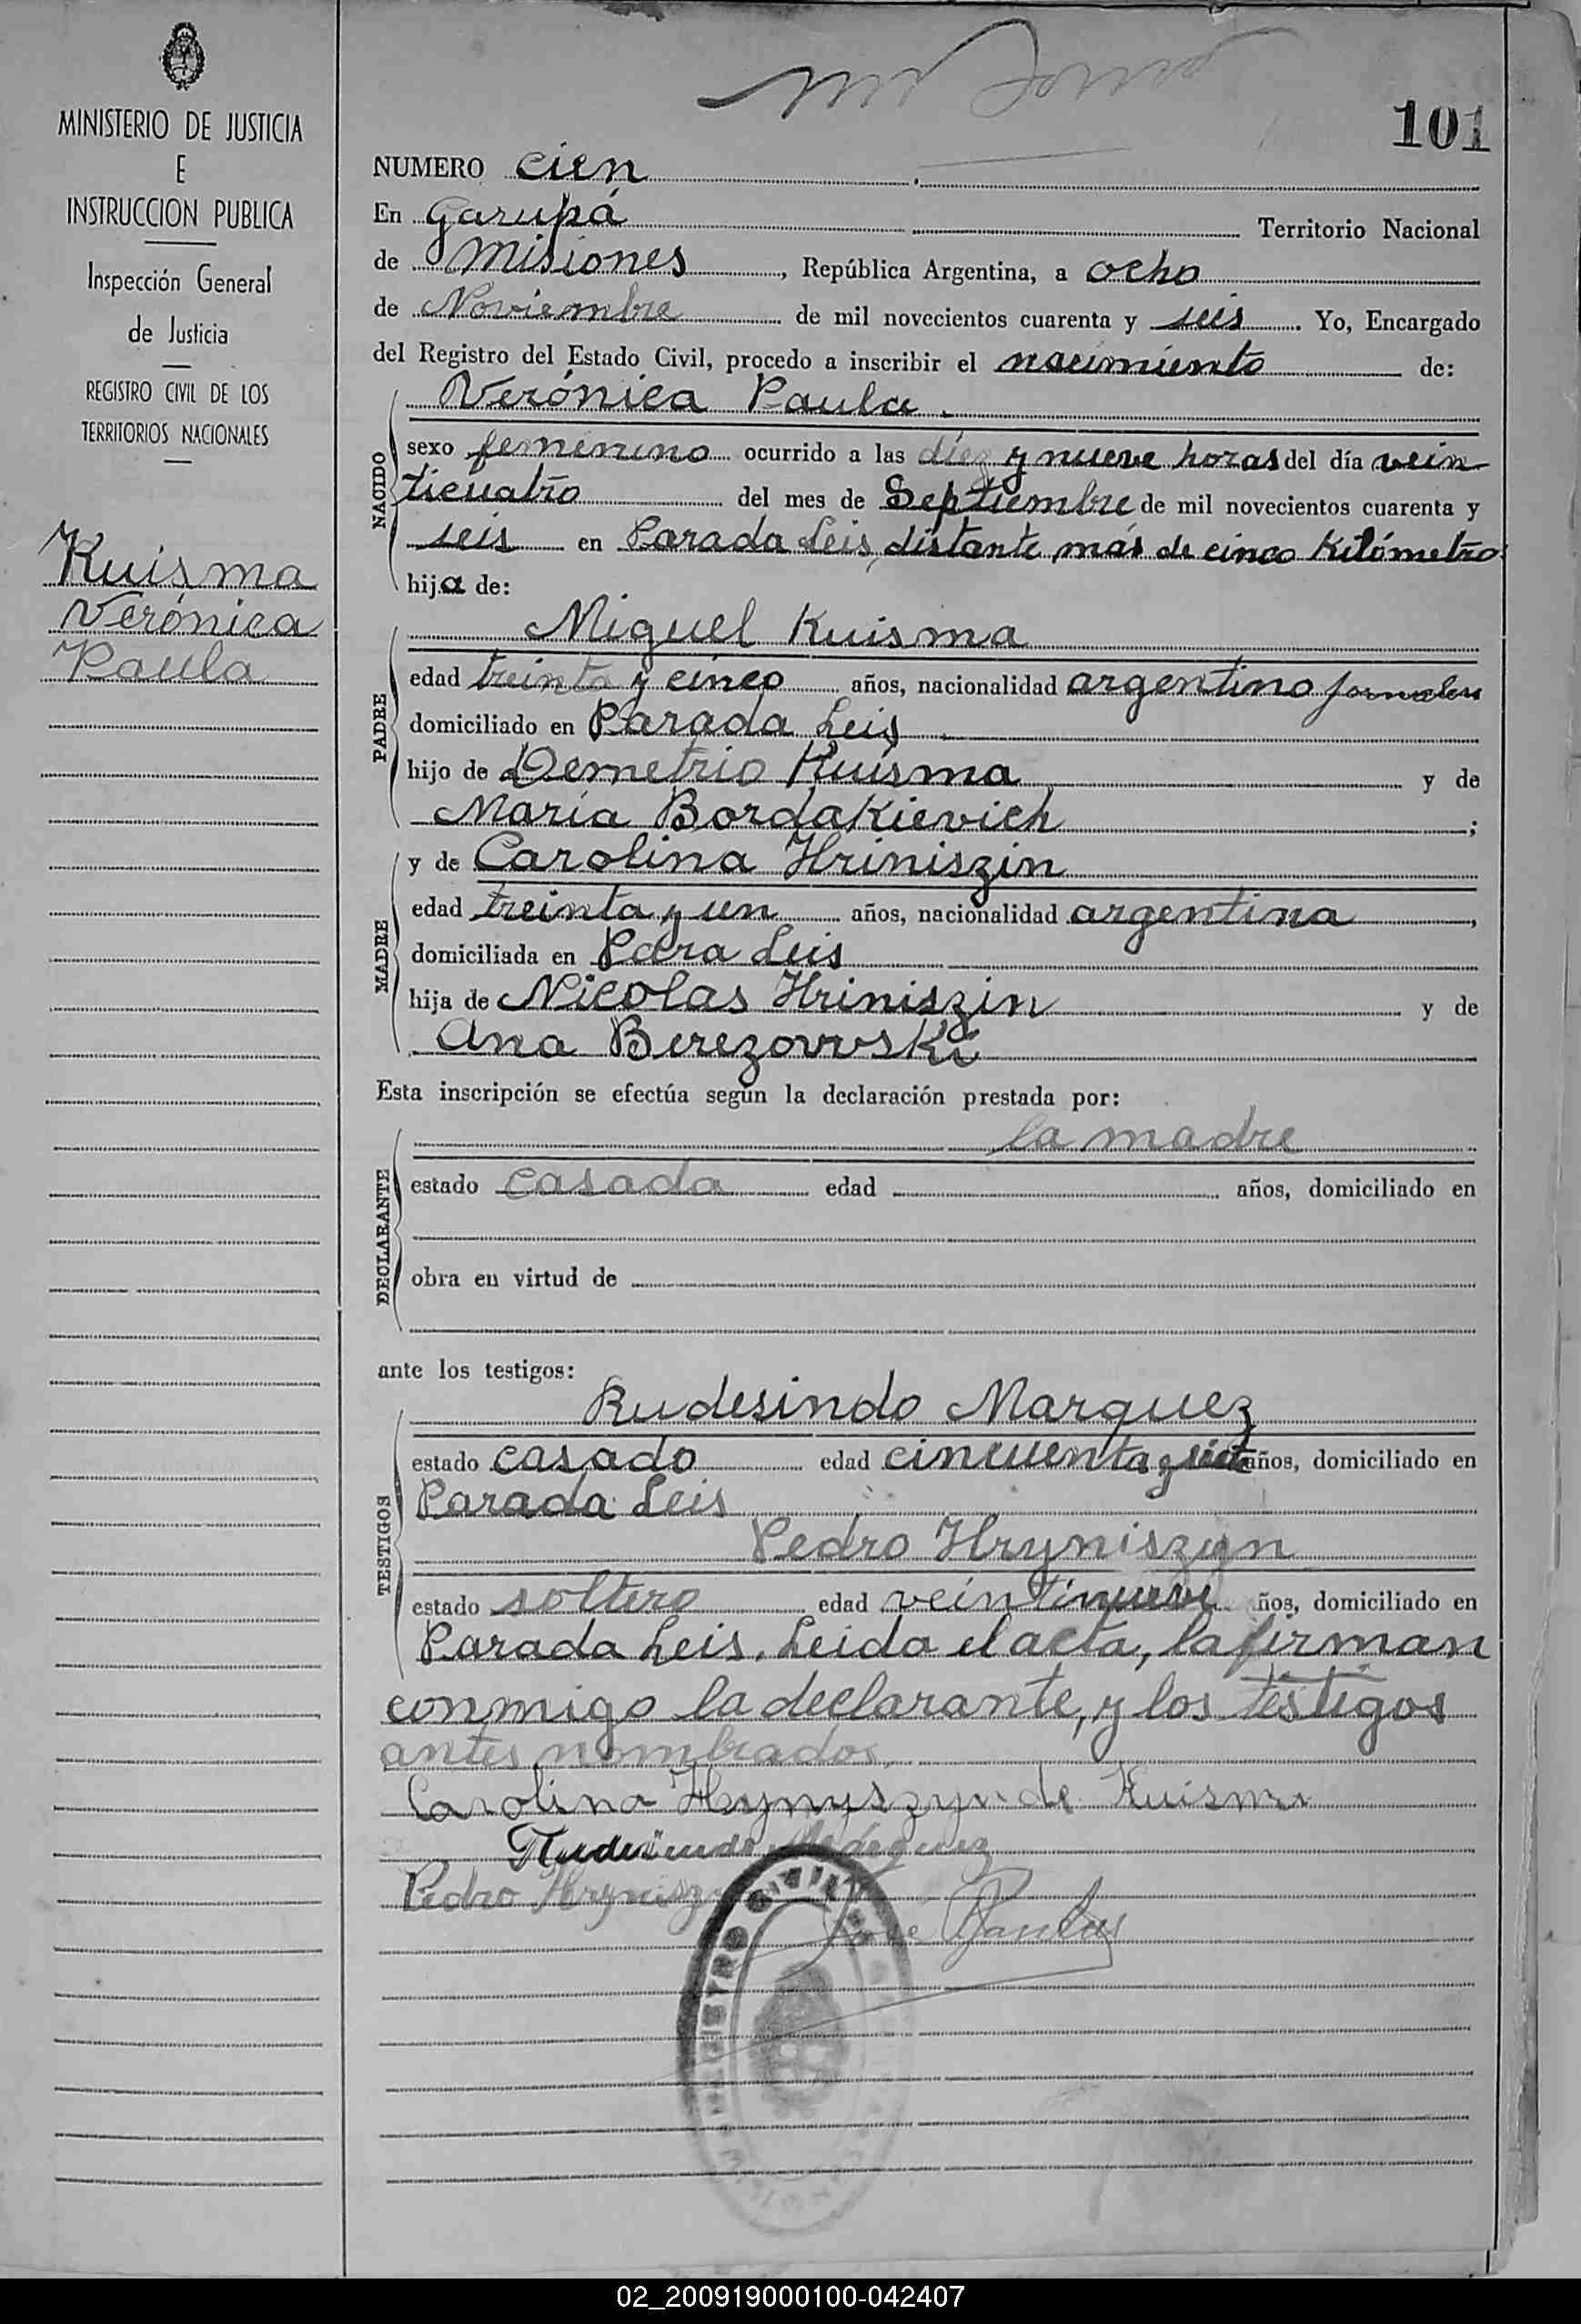 101
MINISTERIO DE JUSTICIA
E
INSTRUCCION PUBLICA
Inspección General
de Justicia
REGISTRO CIVIL DE LOS
TERRITORIOS NACIONALES
Kuisma
Verónica
Paula
NUMERO cien
En Garupá Territorio Nacional
de Misiones, República Argentina, a ocho
de Noviembre de mil novecientos cuarenta y seis. Yo, Encargado
del Registro del Estado Civil, procedo a inscribir el nacimiento de:
NACIDO
Verónica Paula.
sexo femenino ocurrido a las diez y nueve horas del día vein
ticuatro del mes de Septiembre de mil novecientos cuarenta y
seis en Parada Leis, distante más de cinco Kilómetros
hija de:
PADRE
Miguel Kuisma
edad treinta y cinco años, nacionalidad argentino jornalero
domiciliado en Parada Leis
hijo de Demetrio Kuisma y de
María Bordakievich;
MADRE
y de Carolina Hriniszin
edad treinta y un años, nacionalidad argentina,
domiciliada en Para Leis
hija de Nicolas Hriniszin y de
Ana Berezovvski
Esta inscripción se efectúa según la declaración prestada por:
DECLARANTE
la madre
estado casada edad años, domiciliado en
obra en virtud de
ante los testigos:
TESTIGOS
Rudesindo Marquez
estado casado edad cincuenta y siete años, domiciliado en
Parada Leis
Pedro Hryniszyn
estado soltero edad veintinueve ños, domiciliado en
Parada Leis. Leida el acta, la firman
conmigo la declarante, y los testigos
antes nombrados,
Carolina Hrynyszyn de Kuisma
Rudesindo
Pedro
José
REGISTRO CIVIL
02_200919000100-042407